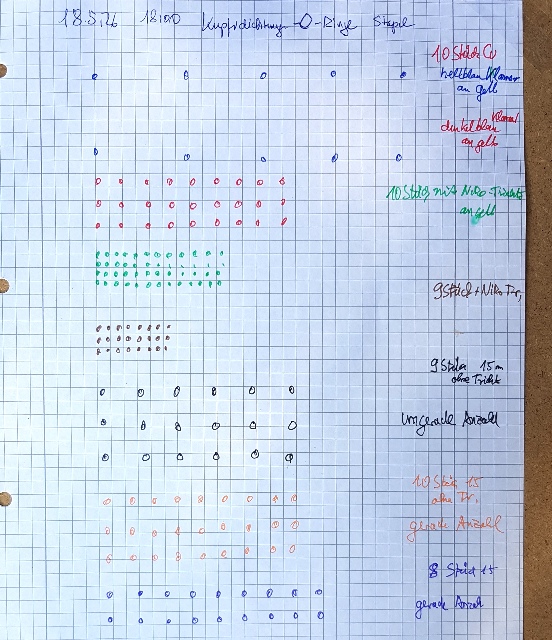 18.5.26 18:00 Kupferdichtung -O-Ringe Stapel
10 Stück Cu
hellblau Klammer
an gelb
dunkelblau Klammer
an gelb
10 Stück mit Niro-Trichter
an gelb
9 Stück + Niro Tr.
9 Stück 15 m
ohne Tricht
ungerade Anzahl
10 Stück 15
ohne Tr.
gerade Anzahl
8 Stück 15
gerade Anzahl